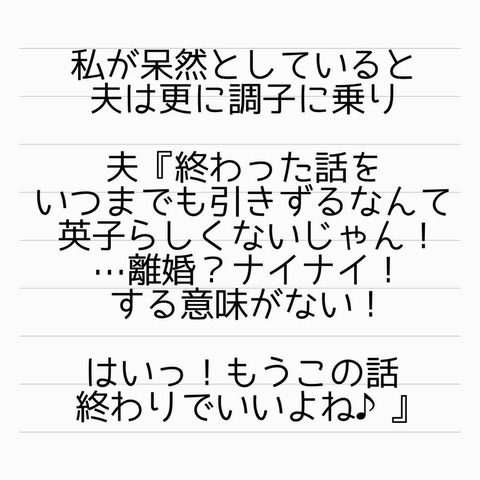 私が呆然としていると
夫は更に調子に乗り
夫『終わった話を
いつまでも引きずるなんて
英子らしくないじゃん！
…離婚？ナイナイ！
する意味がない！
はいっ！もうこの話
終わりでいいよね♪』